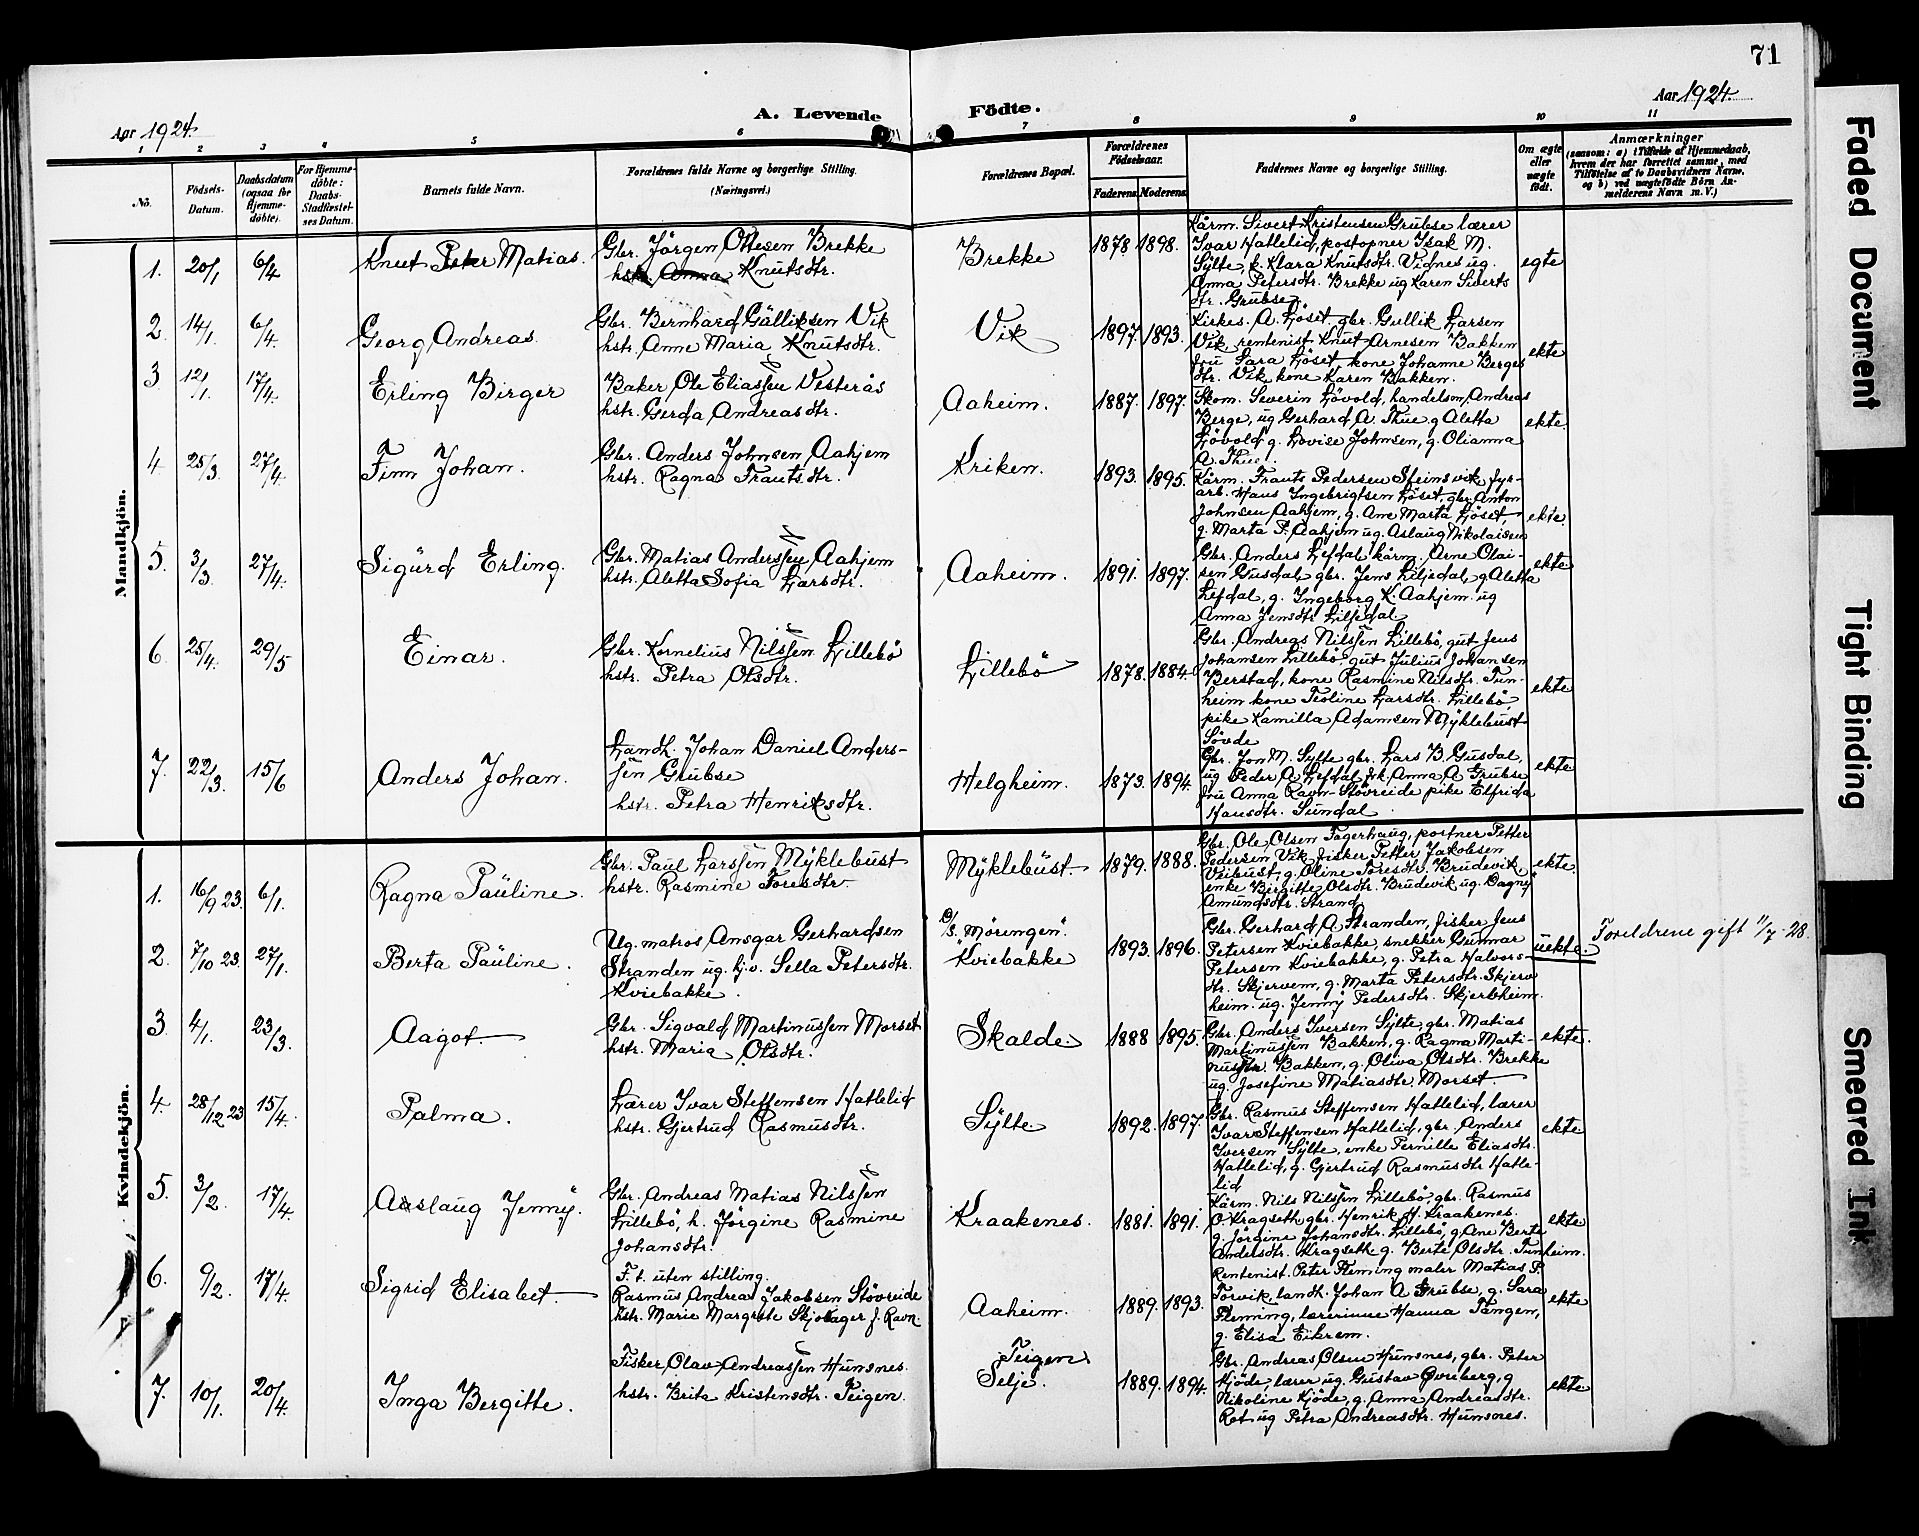 71
Aar 1924.
A. Levende Födte.
Aar 1924.
1 2 3 4 5 6 7 8 9 10 11
No.
Födsels-Datum.
Daabsdatum (ogsaa for Hjemmedöbte).
For Hjemmedöbte: Daabs Stadfæstelses Datum.
Barnets fulde Navn.
Forældrenes fulde Navne og borgerlige Stilling. (Næringsvei.)
Forældrenes Bopæl.
Forældrenes Födselsaar.
Faderens. Moderens.
Faddernes Navne og borgerlige Stilling.
Om ægte eller uægte født.
Anmærkninger
(saasom: a) i Tilfælde af Hjemmedaab, hvem der har forrettet samme, med Tilföielse af to Daabsvidners Navne, og b) ved uægtefödte Börn Anmelderens Navn m. V.)
Mandkjön.
1. 20/1 6/4 Knut Peter Matias.
Gbr. Jörgen Ottesen Brekke
hstr. Anna Knutsdtr.
Brekke 1878 1898.
Kårm. Sivert Kristensen Grubse lærer
Ivar Hatlelid, postopner Isak M.
Sylte, k. Klara Knutsdtr. Vidnes ug.
Anna Petersdtr. Brekke ug Karen Siverts
dtr. Grubse.
egte
2 14/1. 6/4. Georg Andreas.
Gbr. Bernhard Gülliksen Vik
hstr. Anne Maria Knutsdtr.
Vik 1897. 1893.
Kirkes. A. Löset gbr. Gullik Larsen
Vik, rentenist Knut Arnesen Bakken
fru Sara Löset kone Johanne Berges
dtr. Vik kone Karen Bakken.
ekte
3 12/1. 17/4. Erling Birger
Baker Ole Eliassen Vesterås
hstr. Gerda Andreasdtr.
Aaheim. 1887. 1897.
Skom. Severin Lövold, handelsm. Andreas
Berge, ug Gerhard A. Thue g Aletta
Lövold g. Lovise Johnsen, g. Olianna
A. Thue.
ekte.
4 25/3. 27/4. Finn Johan.
Gbr. Anders Johnsen Aahjem
hstr. Ragna Frantsdtr.
Kriken. 1893. 1895.
Kårm. Frants Pedersen Steinsvik fys-
arb. Hans Ingebrigtsen Löset, gbr. Anton
Johnsen Aahjem, g. Ane Marta Löset,
g. Marta P. Aahjem ug. Aslaug Nikolaisen
ekte.
5. 3/3. 27/4. Sigürd Erling.
Gbr. Matias Anderssen Aahjem
hstr. Aletta Sofia Larsdtr.
Aaheim. 1891. 1897.
Gbr. Anders Lefdal kårm. Arne Olai-
sen Gusdal, gbr. Jens Liljedal, g Aletta
Lefdal, g. Ingeborg K. Aahjem. ug
Anna Jensdtr Liljedal
ekte
6. 25/4. 29/5 Einar.
Gbr. Kornelius Nilssen Lillebö
hstr. Petra Olsdtr.
Lillebö 1878. 1884.
Gbr. Andreas Nilssen Lillebö, gut Jens
Johansen Lillebö, gut Julius Johansen
Berstad, kone Rasmine Nilsdtr. Tun-
heim kone Teoline Larsdtr. Lillebö
pike Kamilla Adamsen Myklebust
Sövde
ekte
7. 22/3. 15/6 Anders Johan.
Landh. Johan Daniel Anders-
sen Grubse
hstr. Petra Henriksdtr.
Helgheim. 1873. 1894.
Gbr. Jon M. Sylte gbr. Lars B. Gusdal,
ug Peder A Lefdal, frk. Anna A Grubse
fru Anna Ravn-Stövreide pike Elfrida
Hansdtr. Sundal
ekte
Kvindekjön.
1. 16/9 23. 6/1. Ragna Paüline.
Gbr. Paul Larssen Myklebust
hstr. Rasmine Toresdtr.
Myklebüst. 1879. 1888.
Gbr. Ole Olsen Fagerhaug, postner Petter
Pedersen Vik fisker Petter Jakobsen
Veibust, g. Oline Toresdtr. Brudevik
enke Birgitte Olsdtr. Brudevik ug. Dagny
Amundsdtr. Strand.
ekte.
2. 7/10 23. 27/1. Berta Paüline.
Ug. matros Ansgar Gerhardsen
Stranden ug. tj.v. Sella Petersdtr.
Kviebakke.
D/s. Möringen.
"Kviebakke 1893. 1896.
Gbr. Gerhard A. Stranden, fisker Jens
Petersen Kviebakke, snekker Gunnar
Petersen Kviebakke, g. Petra Halvors-
dtr. Skjervem, g. Marta Petersdtr. Skjerv
heim. ug. Jenny Pedersdtr. Skjerveheim.
uekte.
Foreldrene gift 11/7-28.
3. 4/1. 23/3. Aagot.
Gbr. Sigvald Martinussen Morset
hstr. Maria Olsdtr.
Skalde. 1888 1895.
Gbr. Anders Iversen Sylte, gbr. Matias
Martinussen Bakken, g. Ragna Marti-
nusdtr. Bakken, g. Oliva Olsdtr. Brekke
ug. Josefine Matiasdtr. Morset.
ekte.
4. 28/12 23 15/4. Palma.
Lærer Ivar Steffensen Hatlelid
hstr. Gjertrud Rasmusdtr.
Sylte 1892. 1897.
Gbr. Rasmus Steffensen Hatlelid, lærer
Ivar Steffensen Hatlelid, gbr. Anders
Iversen Sylte, enke Pernille Eliasdtr.
Hatlelid, g. Gjertrud Rasmusdtr Hatle-
lid
ekte
5. 3/2. 17/4. Aaslaug Jenny.
Gbr. Andreas Matias Nilssen
Lillebö, h. Jörgine Rasmine
Johansdtr.
Kraakenes. 1881. 1891.
Kårm. Nils Nilssen Lillebö, gbr. Rasmus
O. Kragseth, gbr. Henrik H. Kraakenes.
g. Jörgine Johansdtr. Lillebö, g Ane Berte
Andersdtr. Kragseth g. Berte Olsdtr. Tunheim.
ekte
6. 9/2. 17/4. Sigrid Elisabet.
F. t. uten stilling.
Rasmus Andreas Jakobsen Stövreide
hstr. Marie Margrete Skjolager f. Ravn.
Aaheim. 1889. 1893.
Rentenist Peter Fleming maler Matias P.
Torvik, landh. Johan A Grubse, g. Sara
Fleming, lærerinne Hanna Tangen,
g. Elisa Eikrem.
ekte
7. 10/1. 20/4. Inga Bergitte.
Fisker Olav Andreassen Hunsnes.
hstr. Brita Kristensdtr. Teigen.
Teigen
Selje. 1889. 1894.
Gbr. Andreas Olsen Hunsnes, gbr. Peter
Kjöde, lærer ug. Gustav Øvreberg, g
Nikoline Kjöde, g. Anna Andreasdtr.
Rot ug Petra Andreasdtr. Hunsnes.
ekte
Faded Document
Tight Binding
Smeared Ink